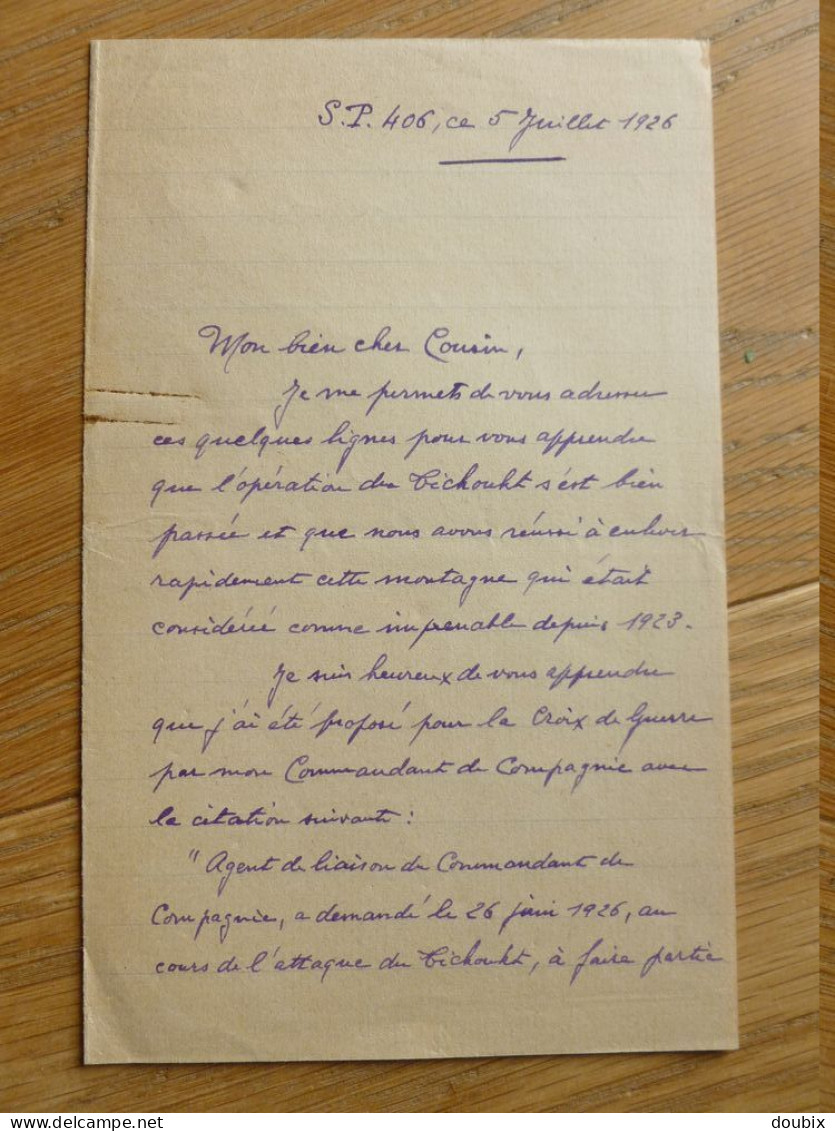 S.P. 406, ce 5 Juillet 1926
Mon bien cher Cousin,
Je me permets de vous adresser
ces quelques lignes pour vous apprendre
que l'opération du Tichoukt s'est bien
passée et que nous avons réussi à enlever
rapidement cette montagne qui était
considérée comme imprenable depuis 1923.
Je suis heureux de vous apprendre
que j'ai été proposé pour la Croix de Guerre
par mon Commandant de Compagnie avec
la citation suivante :
"Agent de liaison du Commandant de
Compagnie, a demandé le 26 juin 1926, au
cours de l'attaque du Tichoukt, à faire partie
delcampe.net
doubix